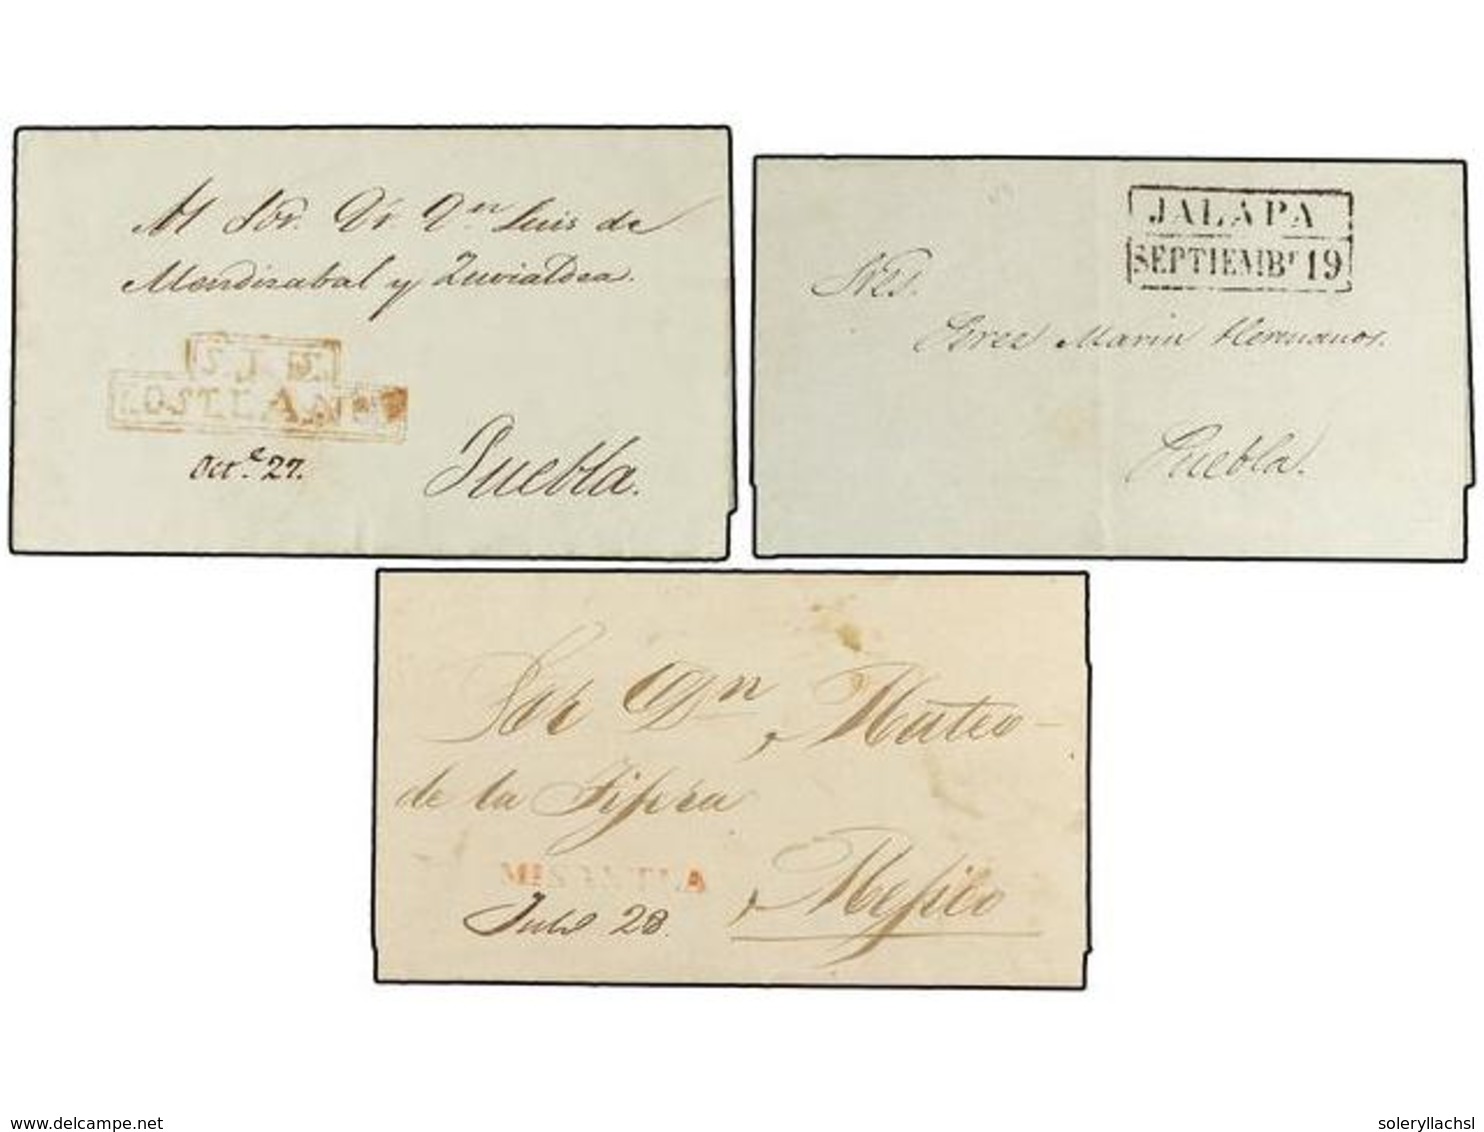 Al Sor. Dr. Dn Luis de
Mendizabal y Zuvialdea.
S. J. D.
LOS LLANOS
Octe. 27.
Puebla.
JALAPA
SEPTIEMBr 19
Sres.
Perez Marin Hermanos.
Puebla.
Sor Dn Mateo
de la
MISANTLA
Julio 28.
Mejico
www.delcampe.net
soleryllachsl